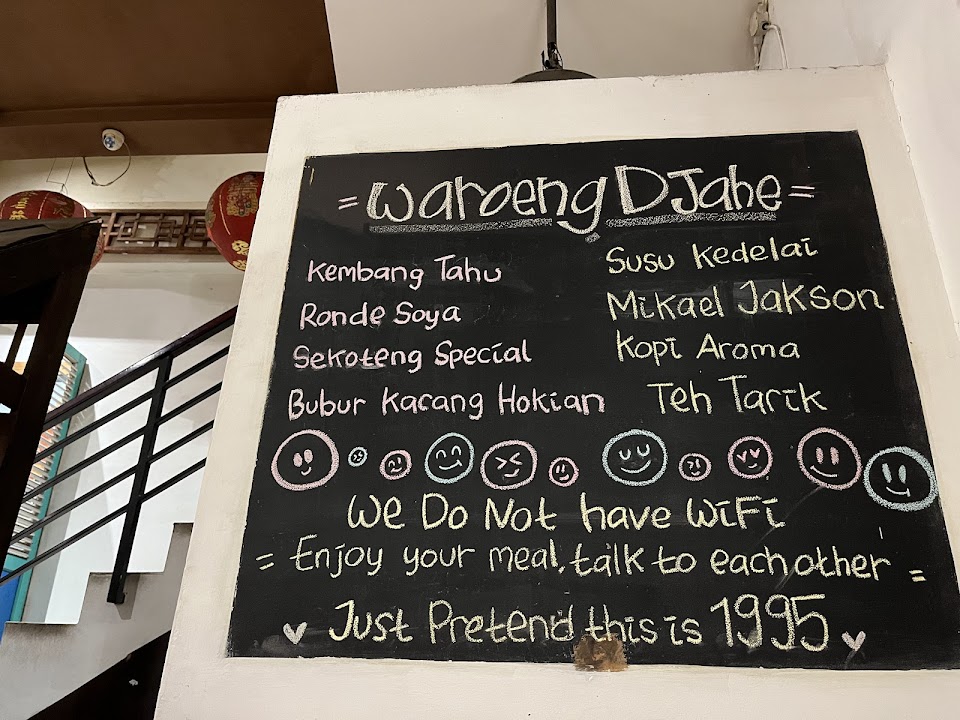 = Waroeng DJahe =
Kembang Tahu
Ronde Soya
Sekoteng Special
Bubur Kacang Hokian
Susu Kedelai
Mikael Jakson
Kopi Aroma
Teh Tarik
We Do Not have WiFi
= Enjoy your meal, talk to each other =
Just Pretend this is 1995